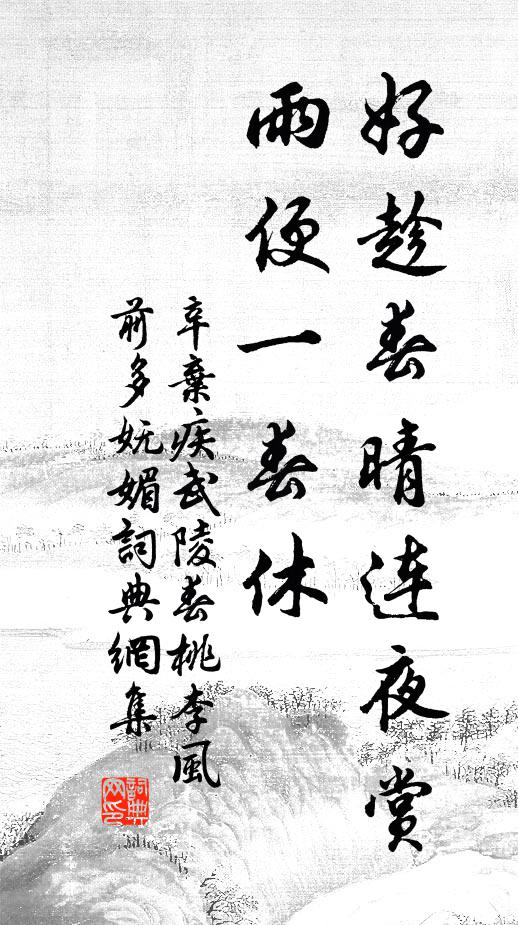 好趁春晴連夜賞
雨便一春休
辛棄疾武陵春桃李風
前多嫵媚詞典網集
詞典
网印